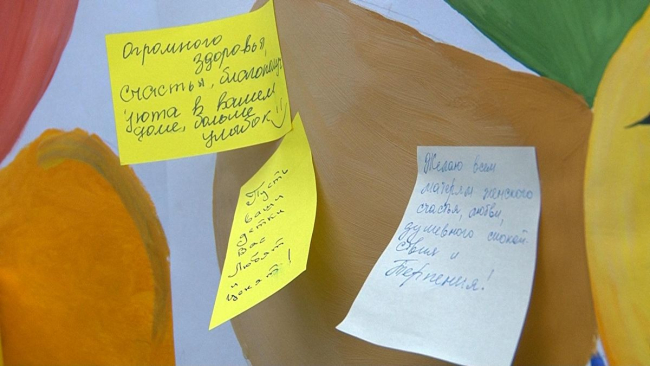 Огромного
здоровья,
счастья, благополуч
уюта в вашем
доме, больше
улыбок!
Пусть
ваши
детки
Вас
и Любят
ценят!
Желаю всем
матерям женского
счастья, любви,
душевного спокой-
ствия и
Терпения!